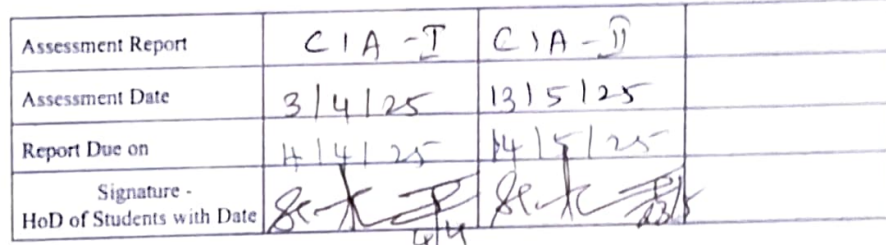 Assessment Report CIA-I CIA-II
Assessment Date 3/4/25 13/5/25
Report Due on 4/4/25 14/5/25
Signature -
HoD of Students with Date
4/4